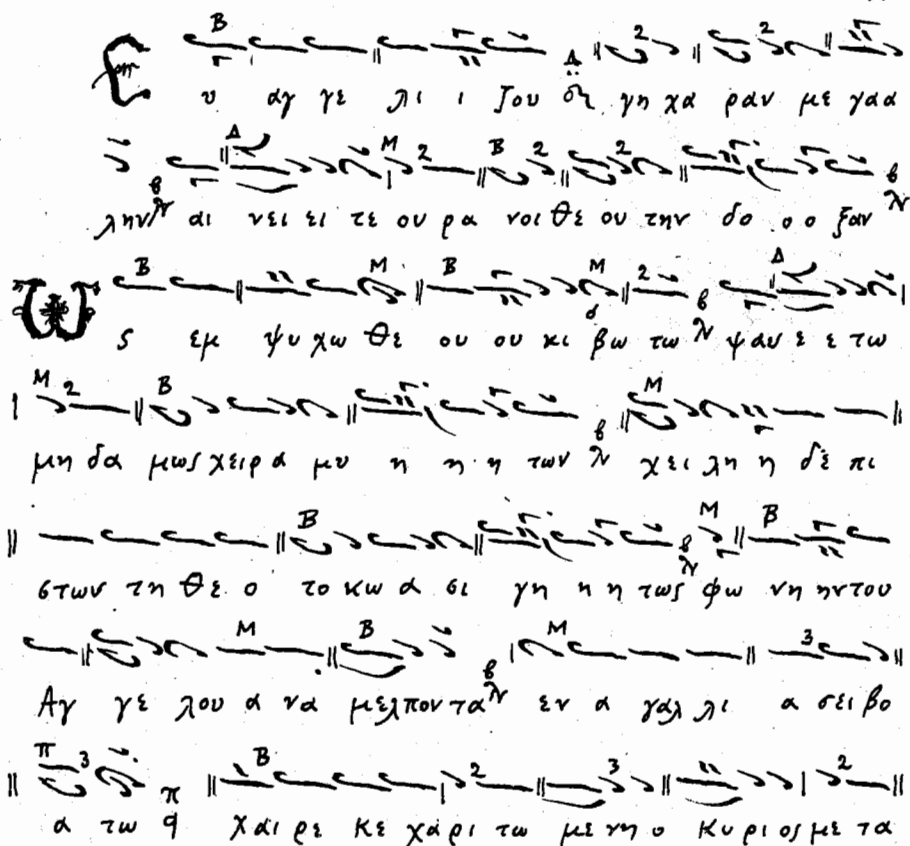 Ε υ αγ γε λι ι ζου δη γη χα ραν με γαα
λην αι νει ει τε ου ρα νοι θε ου την δο ο ο ξαν
Ως εμ ψυ χω θε ου ου κι βω τω ψαυ ε ε τω
μη δα μως χειρ α μυ η η η των χει λη η δε πι
στων τη θε ο το κω α σι γη η η τως φω νη ηντου
Αγ γε λου α να μελποντα εν α γαλ λι α σειβο
α τω χαιρε κε χαρι τω με νη ο Κυριοςμετα